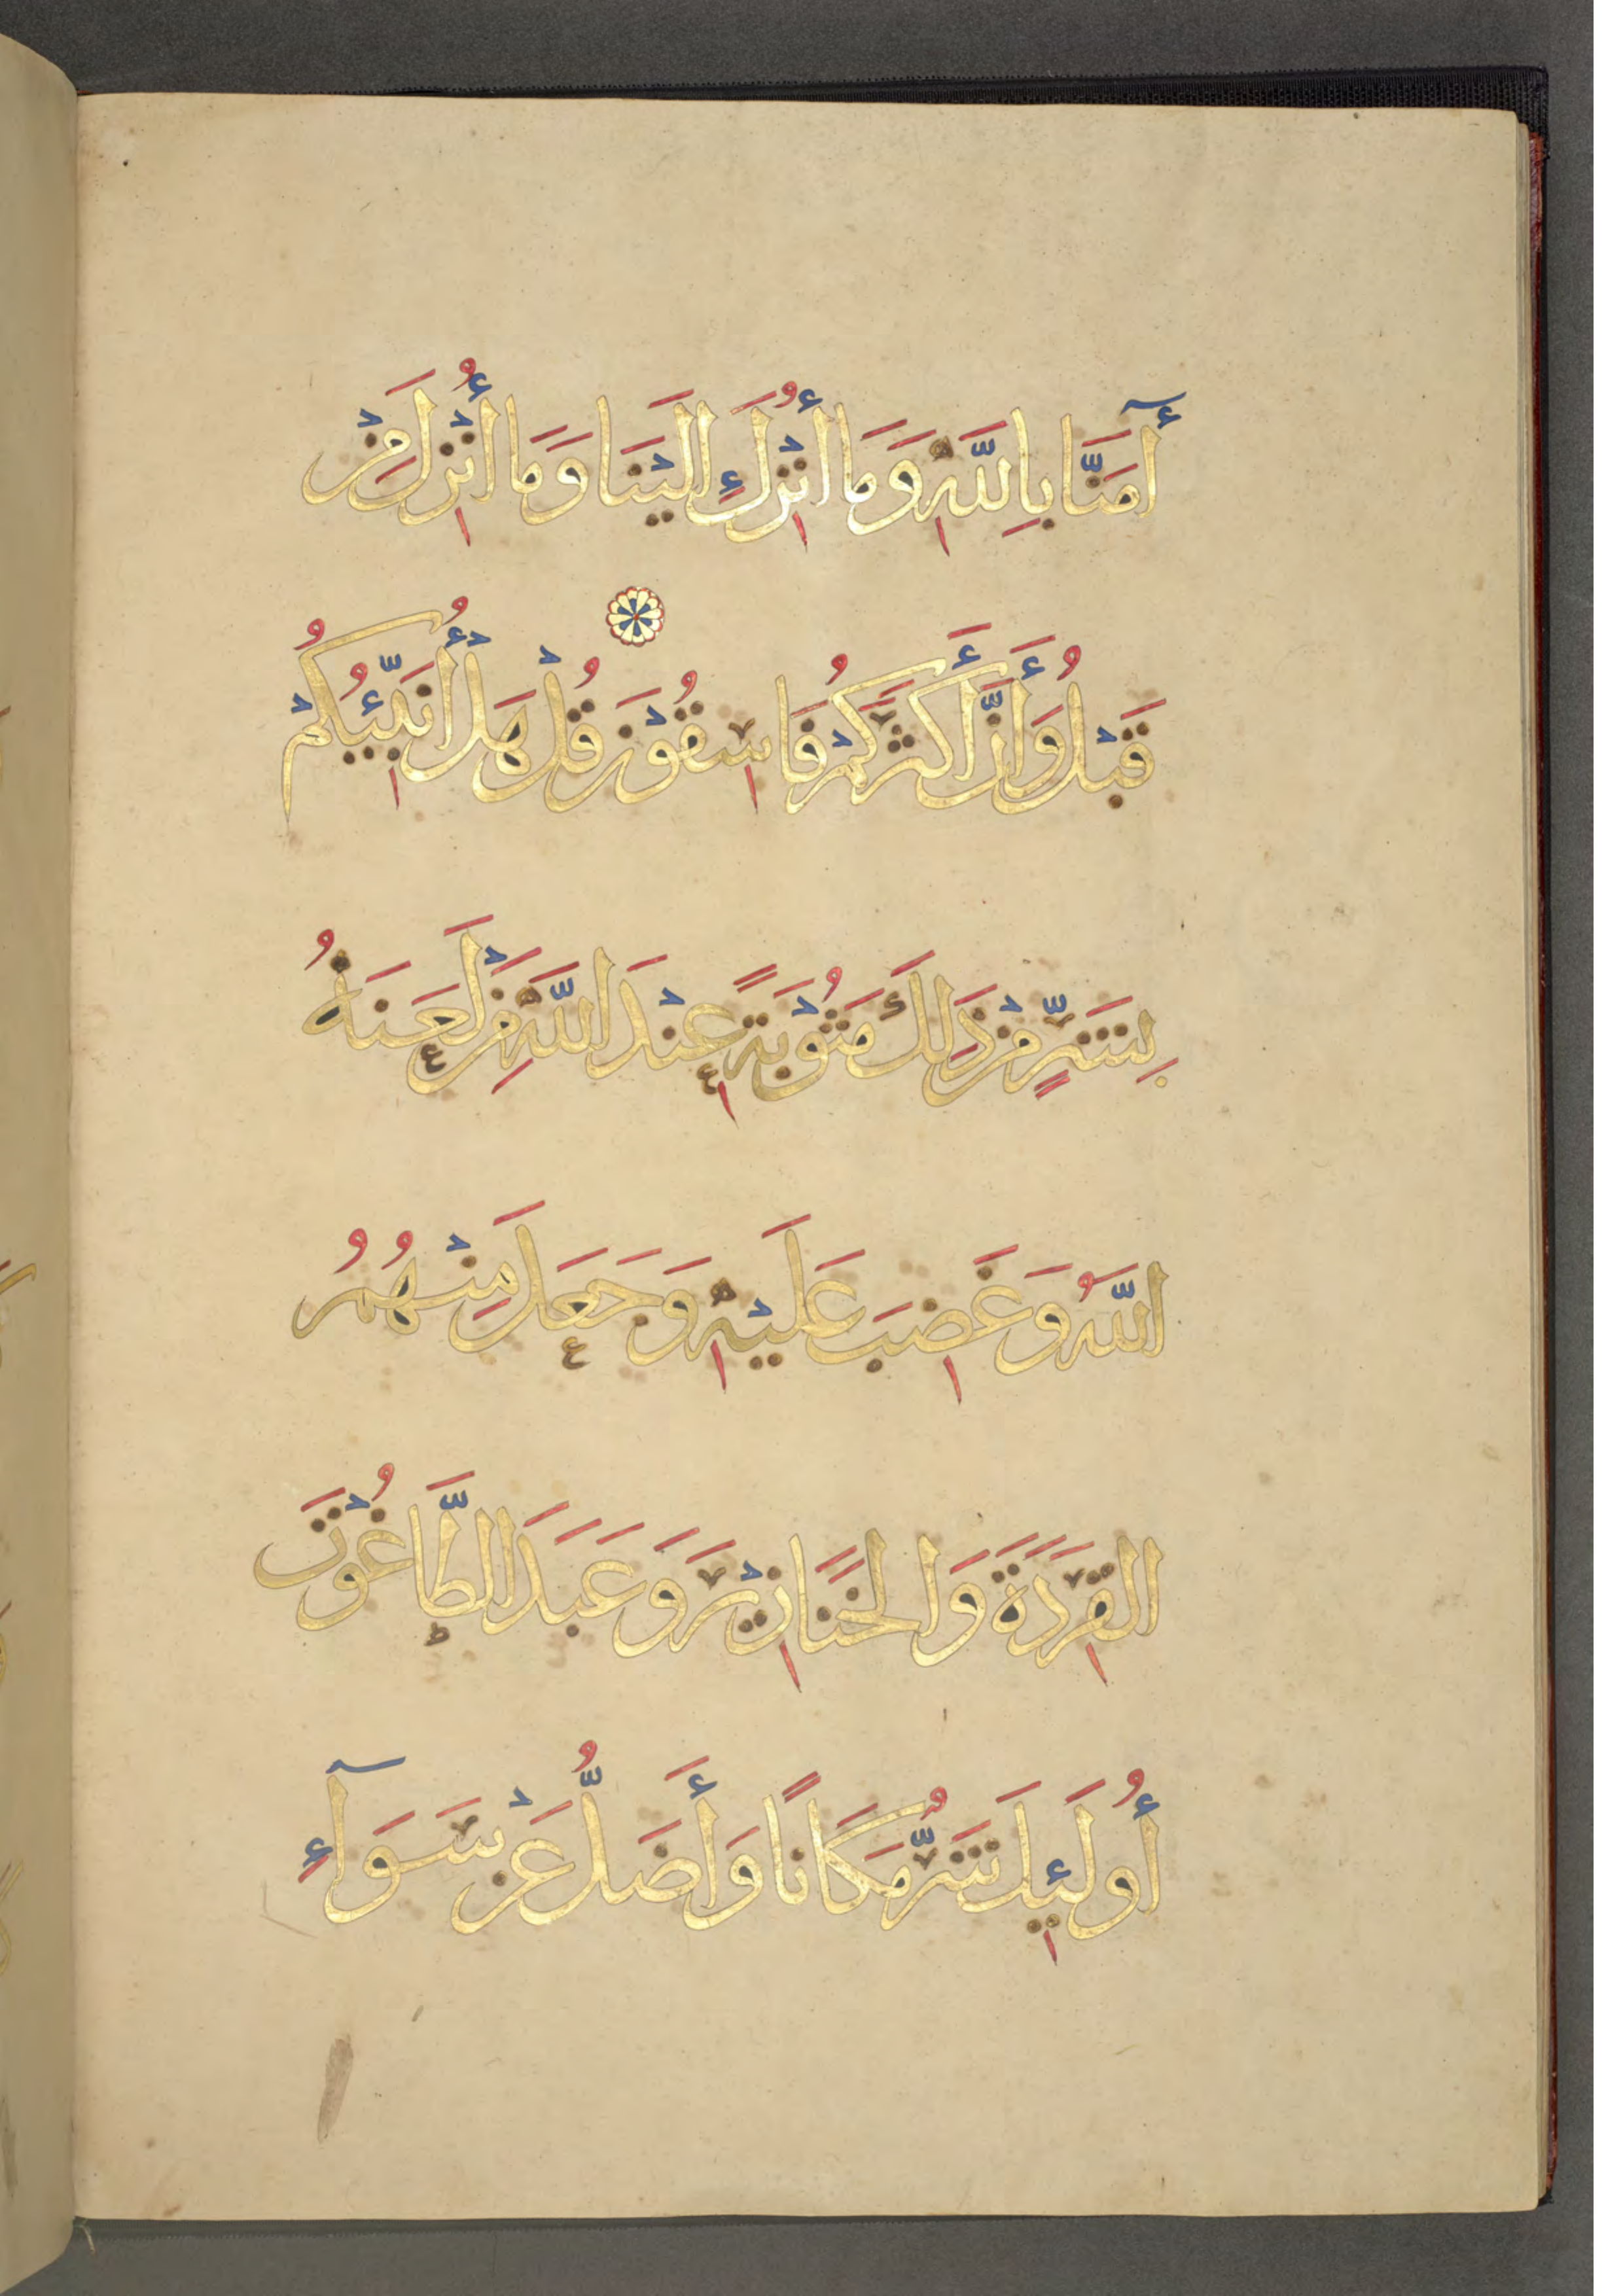 آمَنَّا بِاللَّهِ وَمَا أُنْزِلَ إِلَيْنَا وَمَا أُنْزِلَ مِنْ
قَبْلُ وَأَنَّ أَكْثَرَكُمْ فَاسِقُوْنَ قُلْ هَلْ أُنَبِّئُكُمْ
بِشَرٍّ مِنْ ذَلِكَ مَثُوْبَةً عِنْدَ اللَّهِ مَنْ لَعَنَهُ
اللَّهُ وَغَضِبَ عَلَيْهِ وَجَعَلَ مِنْهُمُ
القِرَدَةَ وَالخَنَازِيْرَ وَعَبَدَ الطَّاغُوْتَ
أُولَئِكَ شَرٌّ مَكَانًا وَأَضَلُّ عَنْ سَوَآءِ